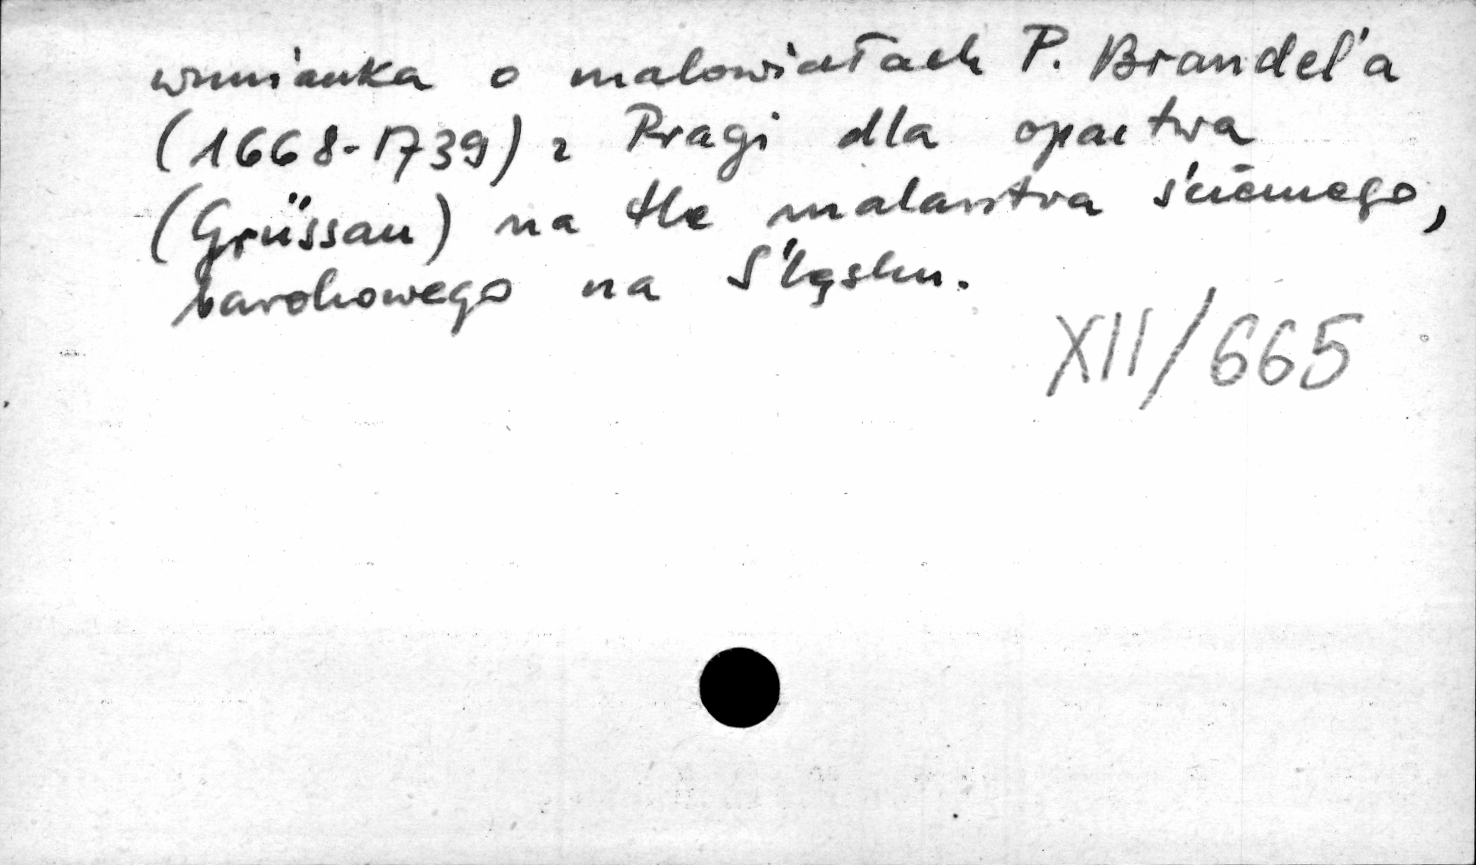 wzmianka o malowidłach P. Brandel'a
(1668-1739) z Pragi dla opactwa
(Grüssau) na tle malarstwa ściennego,
barokowego na Śląsku.
XII/665